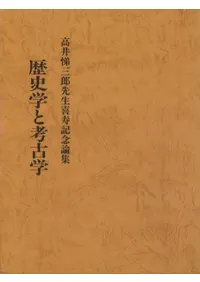 高井悌三郎先生喜寿記念論集
歴史学と考古学